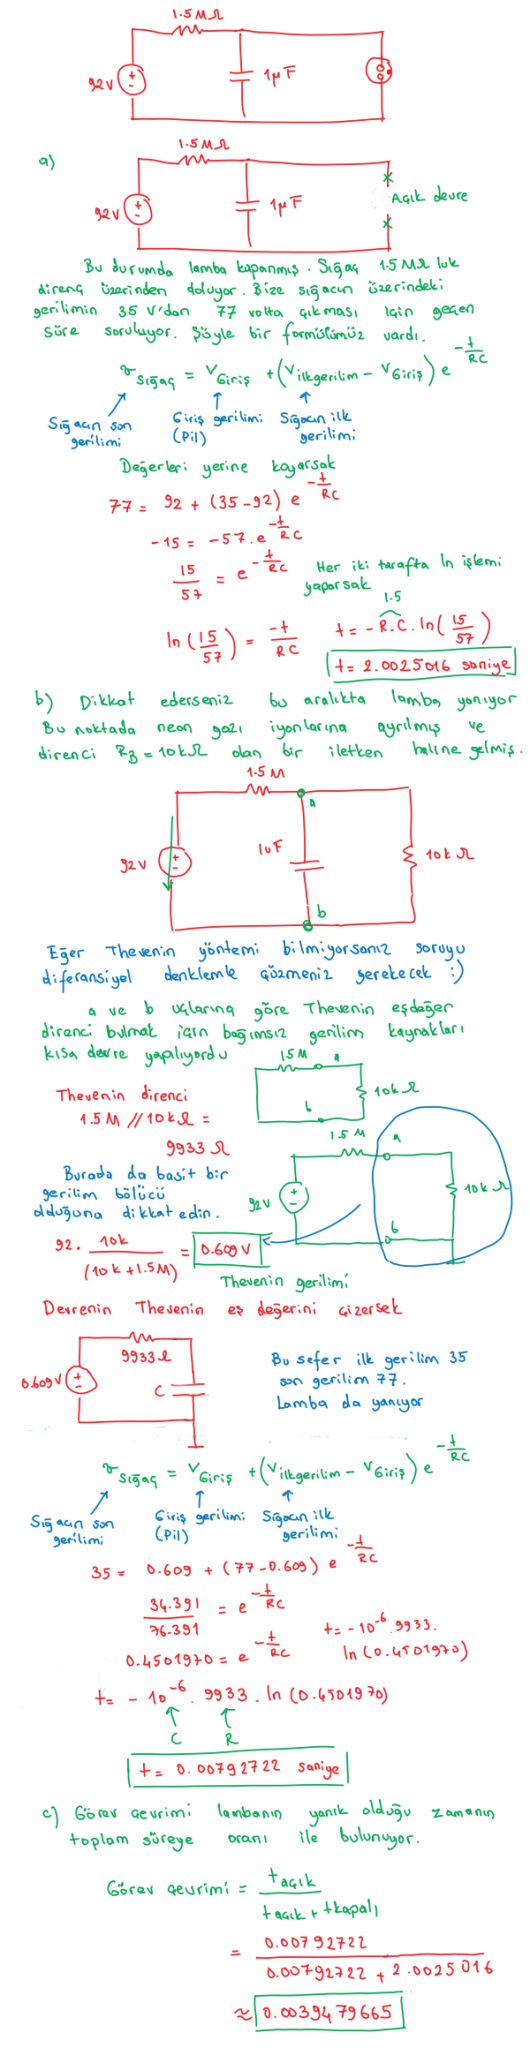 1.5 MΩ
92V
+
-
1μF
1.5 MΩ
a)
92V
+
-
1μF
Açık devre
Bu durumda lamba kapanmış. Sığaç 1.5 MΩ luk
direnç üzerinden doluyor. Bize sığacın üzerindeki
gerilimin 35 V'dan 77 volta çıkması için geçen
süre soruluyor. Şöyle bir formülümüz vardı.
v Sığaç = V Giriş + (V ilkgerilim - V Giriş) e^(-t/RC)
Sığacın son gerilimi
Giriş gerilimi (Pil)
Sığacın ilk gerilimi
Değerleri yerine koyarsak
77 = 92 + (35-92) e^(-t/RC)
-15 = -57.e^(-t/RC)
15/57 = e^(-t/RC)
Her iki tarafta ln işlemi
yaparsak
1.5
ln(15/57) = -t/RC
t = -R.C.ln(15/57)
t = 2.0025016 saniye
b) Dikkat ederseniz bu aralıkta lamba yanıyor
Bu noktada neon gazı iyonlarına ayrılmış ve
direnci RB = 10kΩ olan bir iletken haline gelmiş.
1.5 M
a
92V
+
-
1uF
10k Ω
b
Eğer Thevenin yöntemi bilmiyorsanız soruyu
diferansiyel denklemle çözmeniz gerekecek :)
a ve b uçlarına göre Thevenin eşdeğer
direnci bulmak için bağımsız gerilim kaynakları
kısa devre yapılıyordu
1.5M
a
10k Ω
b
Thevenin direnci
1.5 M // 10kΩ =
9933 Ω
1.5 M
a
92V
+
-
10k Ω
b
Burada da basit bir
gerilim bölücü
olduğuna dikkat edin.
92. 10k/(10k+1.5M) = 0.609 V
Thevenin gerilimi
Devrenin Thevenin eş değerini çizersek
9933Ω
0.609V
+
-
C
Bu sefer ilk gerilim 35
son gerilim 77.
Lamba da yanıyor
v Sığaç = V Giriş + (V ilkgerilim - V Giriş) e^(-t/RC)
Sığacın son gerilimi
Giriş gerilimi (Pil)
Sığacın ilk gerilimi
35 = 0.609 + (77-0.609) e^(-t/RC)
34.391/76.391 = e^(-t/RC)
0.4501970 = e^(-t/RC)
t = -10^-6 . 9933.
ln(0.4501970)
t = - 10^-6 . 9933 . ln(0.4501970)
C
R
t = 0.00792722 saniye
c) Görev çevrimi lambanın yanık olduğu zamanın
toplam süreye oranı ile bulunuyor.
Görev çevrimi = t açık/(t açık + t kapalı)
= 0.00792722/(0.00792722 + 2.0025016)
≈ 0.0039479665